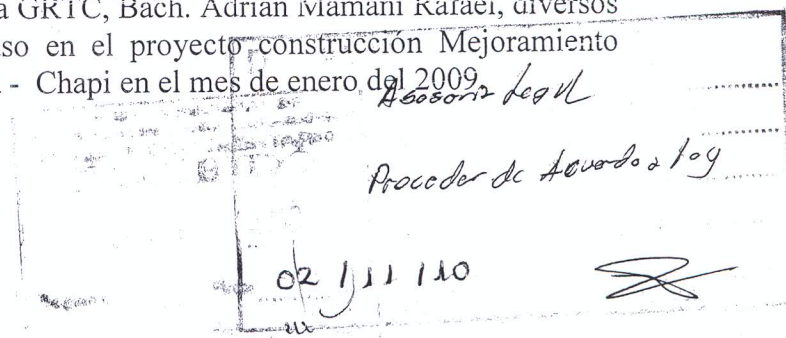 a GRTC, Bach. Adrián Mamani Rafael, diversos
so en el proyecto construcción Mejoramiento
- Chapi en el mes de enero del 2009.
Asesoria Legal
Proceder de Acuerdo a ley
02 / 11 / 10